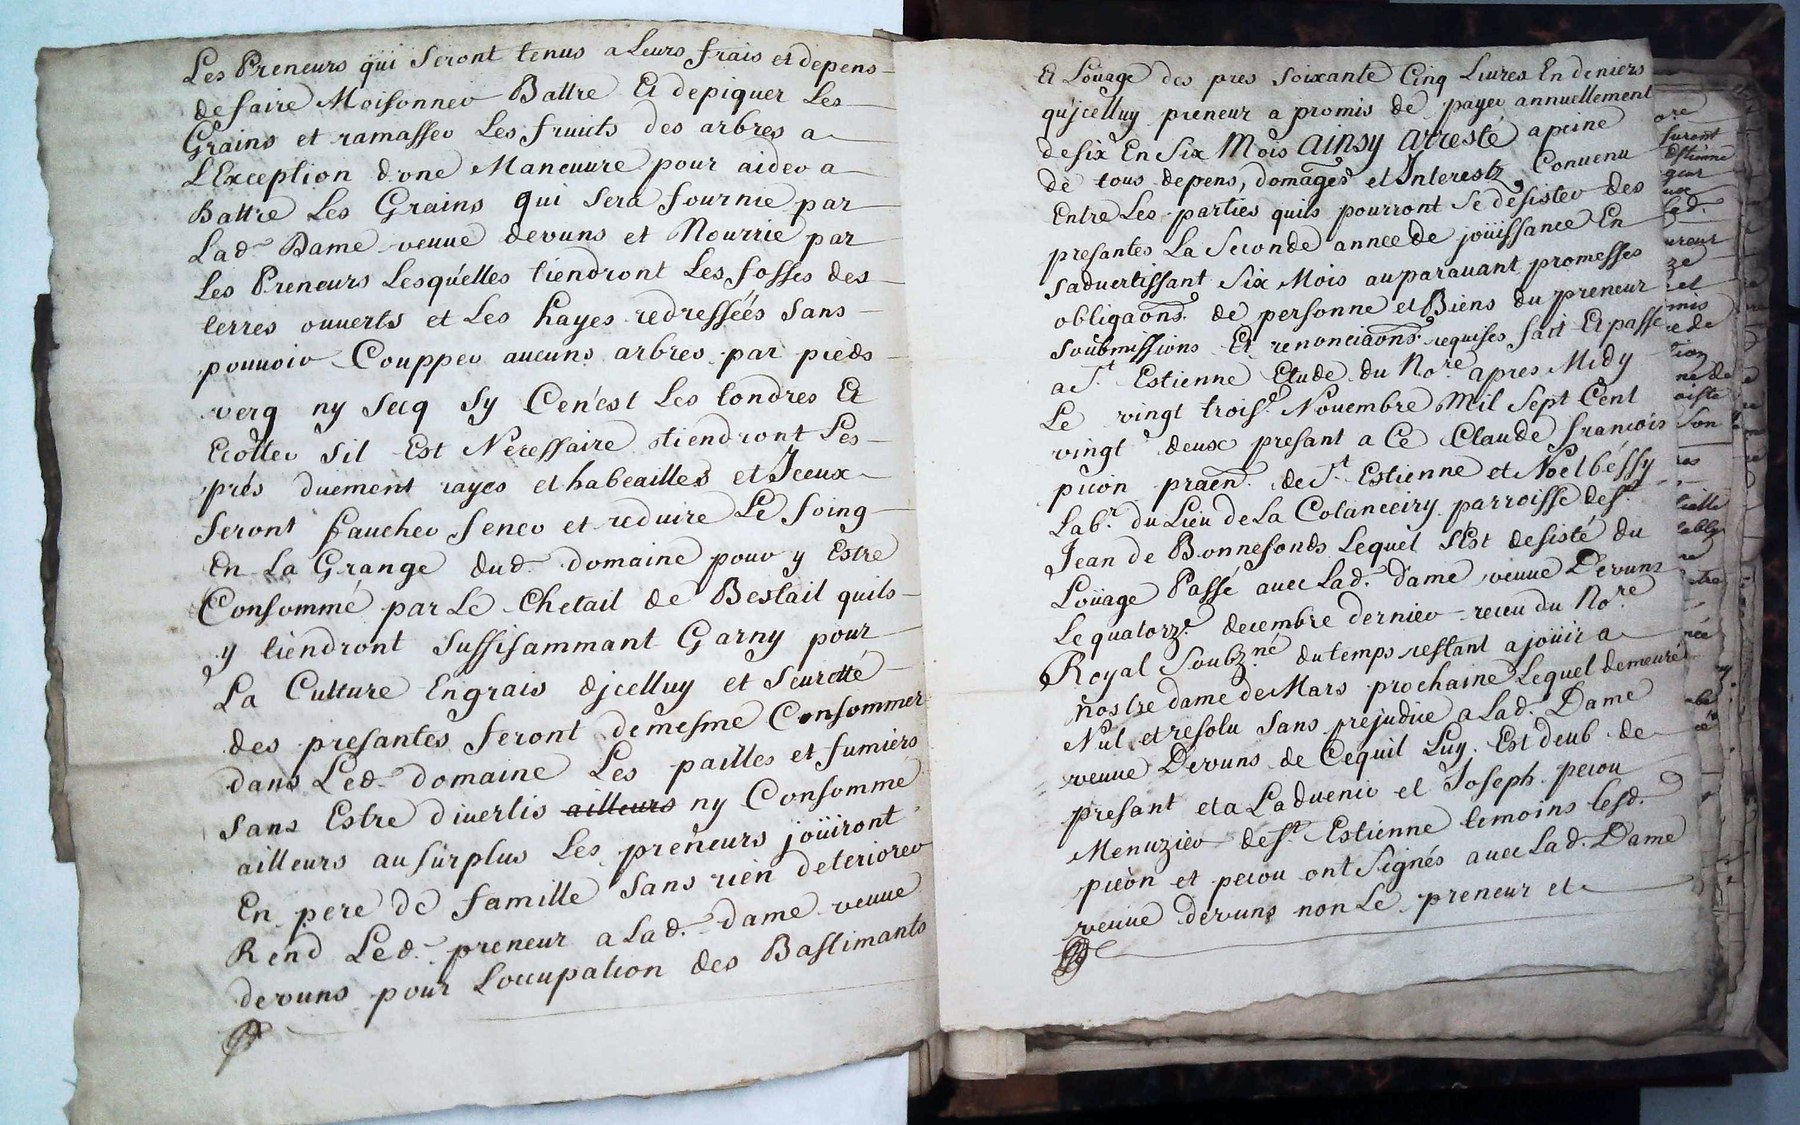 Les Preneurs qüi seront tenus a Leurs frais et depens
de faire Moisonner Battre Et depiquer Les
Grains et ramasser Les fruits des arbres a
L'Exception d'vne Maneuure pour aider a
Battre Les Grains qui sera fournie par
Lad. Dame veuue devuns et Nourrie par
Les Preneurs Lesquelles tiendront Les fosses des
terres ouuerts et Les hayes redresséés sans
pouuoir Coupper aucuns arbres par pieds
verq ny secq sy Cen'est Les tondres Et
Ecotter sil Est Necessaire tiendront Les
prés duement rayes et habeailles et Iceux
seront faucher fener et reduire Le foing
En La Grange dud. domaine pour y Estre
Consommé par Le Chetail de Bestail quils
y tiendront suffisammant Garny pour
La Culture Engrais djcelluy et seuretté
des presantes feront demesme Consommer
dans Led. domaine Les pailles et fumiers
sans Estre diuertis ailleurs ny Consommé
ailleurs au sürplus Les preneurs joüiront
En pere de famille sans rien deteriorer
Rend Led. preneur a Lad. dame veuue
devuns pour L'occupation des Bastimants
Et Loüage des pres soixante Cinq Liures En deniers
qu'jcelluy preneur a promis de payer annuellement
desix En six Mois Ainsy Arresté apeine
de tous depens, domages et Interests Conuenu
Entre Les parties quils pourront se desister des
presantes La seconde anneé de joüissance En
saduertissant six Mois auparauant promesses
obligaons de personne et Biens du preneur
soubmissions Et renonciaons requises fait Et passé
a St. Estienne Etude du Nore apres Midy
Le vingt trois.e Nouembre Mil sept Cent
vingt deux presant a Ce Claude francois
picon praen. de St. Estienne et Noel béssy
Labr. du Lieu de La Colanceiry parroisse de St.
Jean de Bonnefonds Lequel s'Est desisté du
Loüage Passé auec Lad. dame veuue Devuns
Le quatorz.e decembre dernier receu du Nore
Royal soubz.né du temps restant a joüir a
nostre dame de Mars prochaine Lequel demeure
Nul et resolu sans prejudice a Lad. Dame
veuue Devuns de Cequil Luy Est deub de
presant et a L'aduenir et Joseph peiou
Menuzier de St. Estienne temoins lesd.
picon et peiou ont signés auec Lad. Dame
veuue devuns non Le preneur et